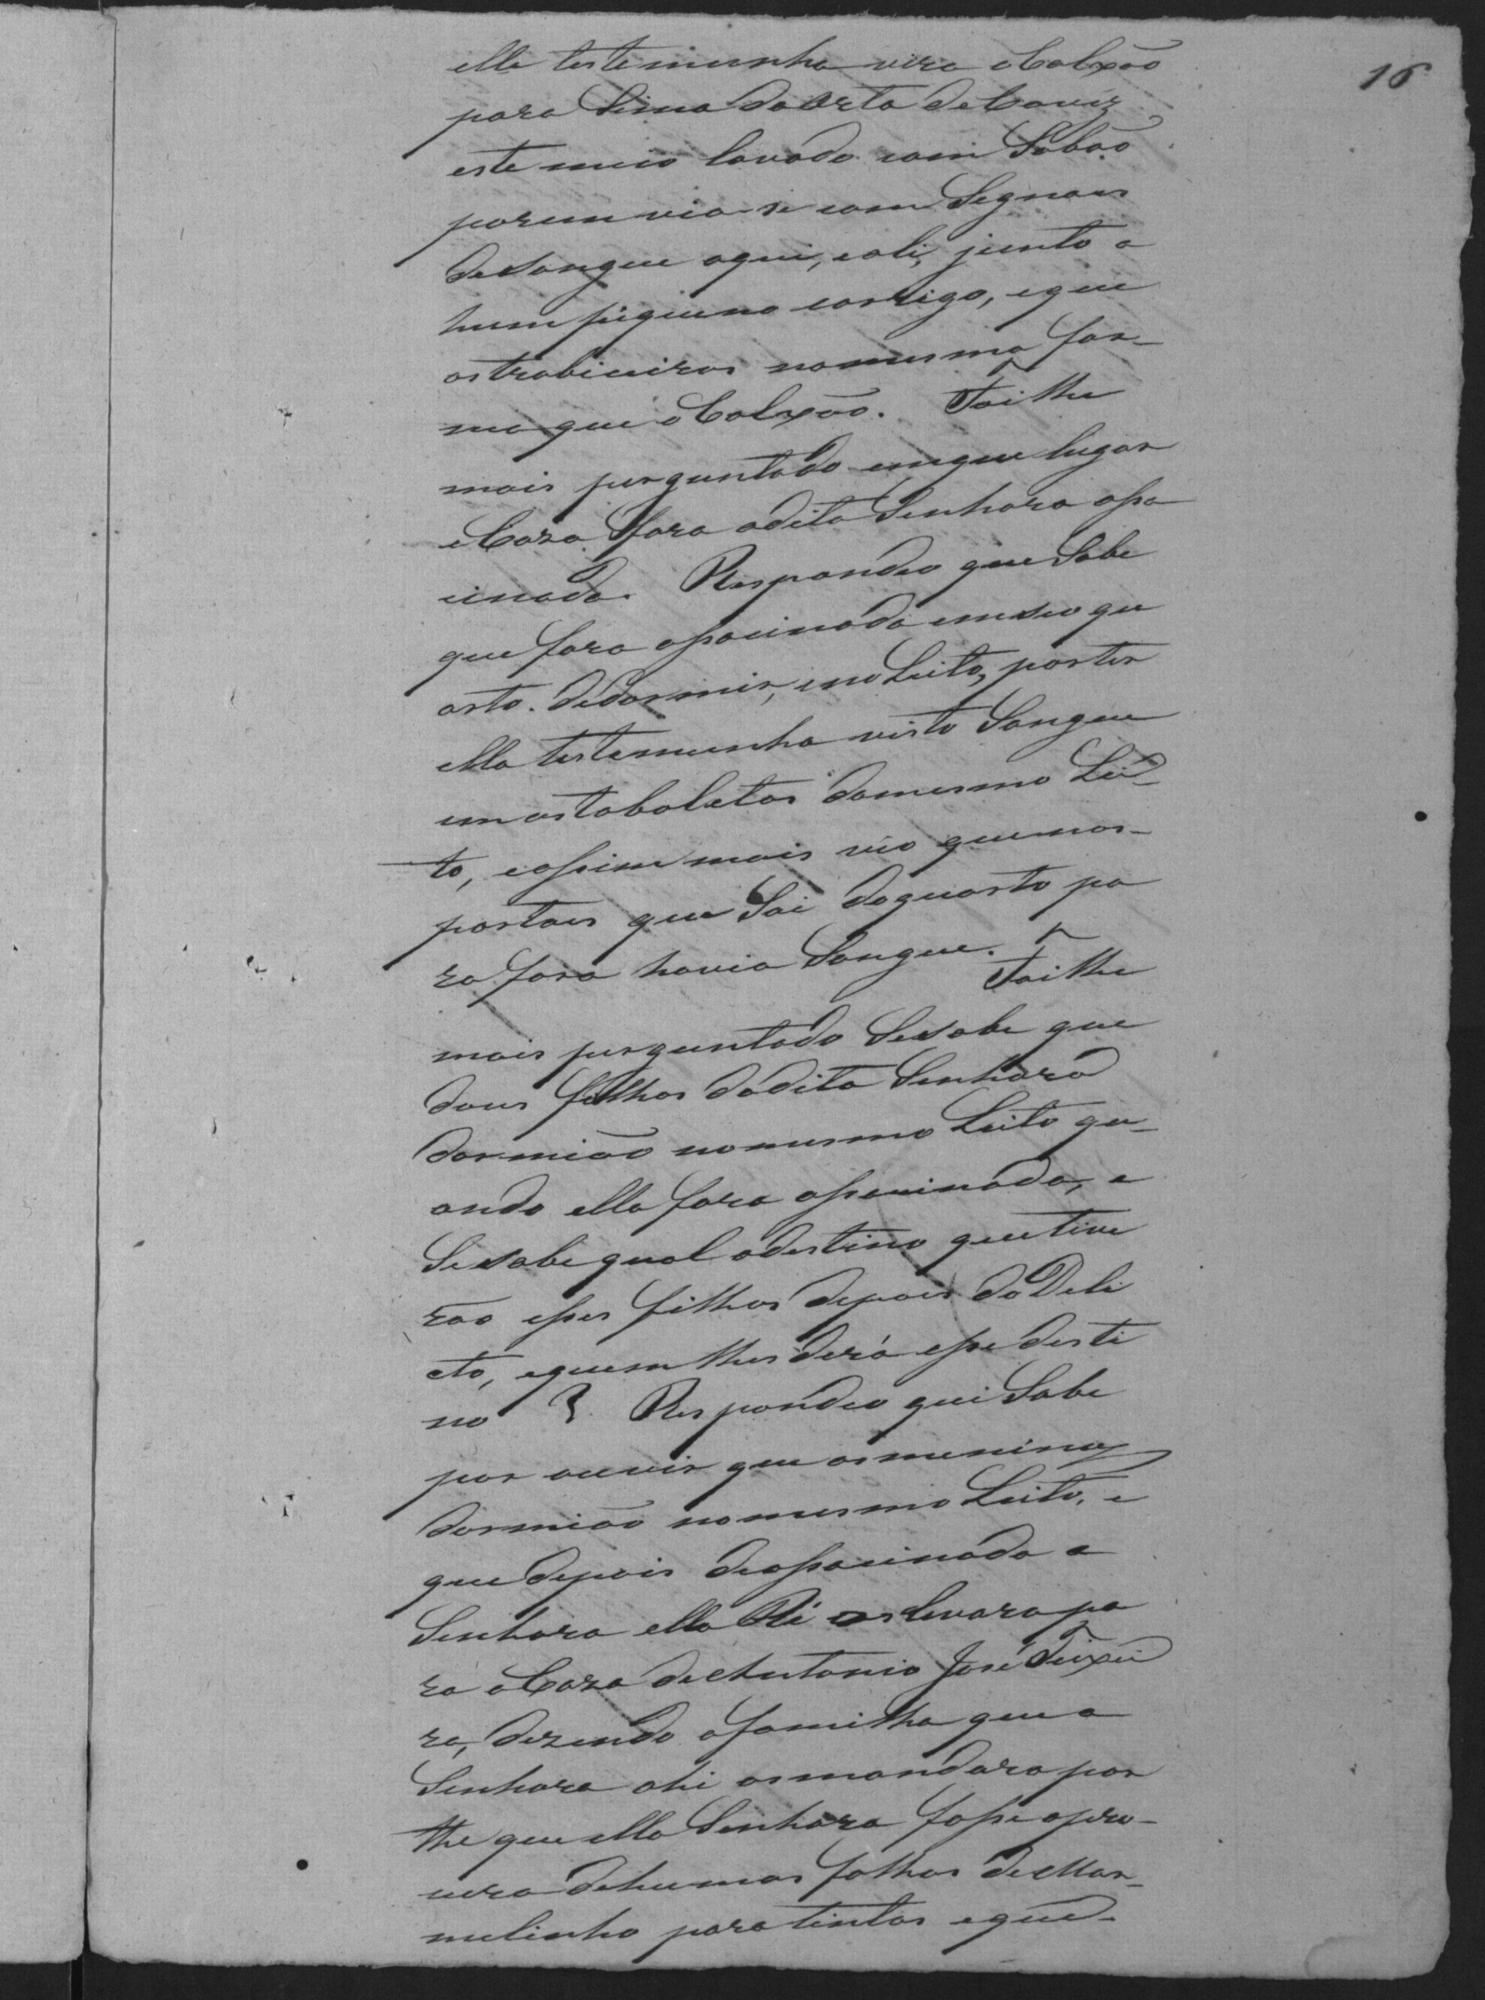 16
ella testemunha vira o Colxão
para sima da orta de Couvez
este meio lavado com Sabão
porem via-se com Segnaes
de sangue aqui, e ali, junto a
hum piqueno corrigo, e que
os trabiceiros na mesma for-
ma que o Colxão. Foi lhe
mais perguntado em que lugar
e Caza fora a dita Senhora assa
cinada. Respondeo que Sabe
que fora assacinada em seo qu
arto de dormir, e no Leito, por ter
ella testemunha visto Sangue
em as taboletas do mesmo Lei-
to, e assim mais vio que nos-
portaes que Sai do quarto pa
ra fora havia Sangue. Foi lhe
mais perguntado Se sabe que
dous filhos da dita Senhora
dormião no mesmo Leito qu-
ando ella fora assacinada, e
Se sabe qual o destino que tive
rão esses filhos depois do Deli
cto, e quem lhes dera esse desti
no ? Respondeo qui Sabe
por ouvir que os meninos
dormião no mesmo Leito, e
que depois de assacinada a
Senhora ella Ré os levara pa
ra a Caza de Antonio José Teixei
ra, dizendo a familha que a
Senhora ahi os mandara por
lhe que ella Senhora fosse a pro-
cura de humas folhas de Mar-
melinho para tintas e que-